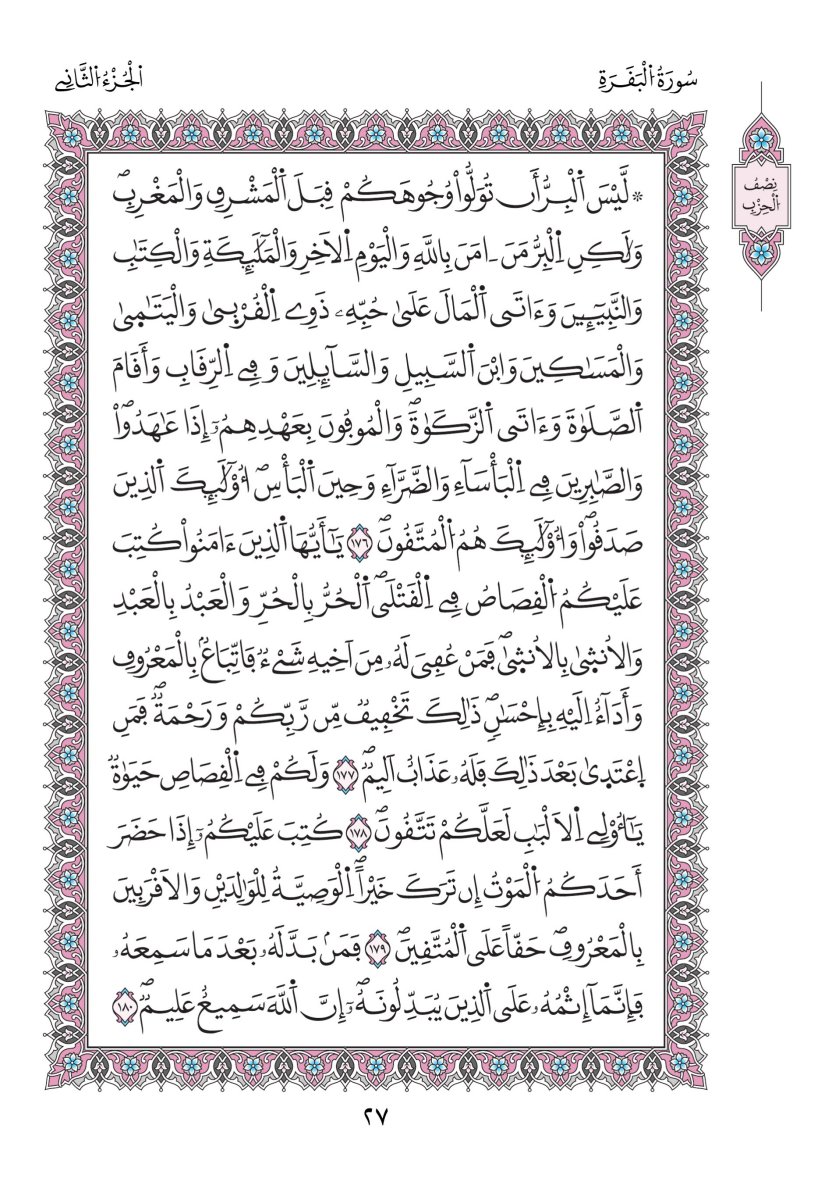 سُورَةُ الْبَقَرَةِ
الْجُزْءُ الثَّانِي
نِصْفُ
الْحِزْبِ
* لَّيْسَ اَ۬لْبِرُّ أَن تُوَلُّواْ وُجُوهَكُمْ قِبَلَ اَ۬لْمَشْرِقِ وَالْمَغْرِبِۖ
وَلَٰكِنِ اِ۬لْبِرُّ مَنَ اٰمَنَ بِاللَّهِ وَالْيَوْمِ اِ۬لَاخِرِ وَالْمَلَٰٓئِكَةِ وَالْكِتَٰبِ
وَالنَّبِيٓـِٕينَ وَءَاتَي اَ۬لْمَالَ عَلَىٰ حُبِّهِۦ ذَوِے اِ۬لْقُرْب۪ىٰ وَالْيَتَٰم۪ىٰ
وَالْمَسَٰكِينَ وَابْنَ اَ۬لسَّبِيلِ وَالسَّآئِلِينَ وَفِے اِ۬لرِّقَابِ وَأَقَامَ
اَ۬لصَّلَوٰةَ وَءَاتَي اَ۬لزَّكَوٰةَۖ وَالْمُوفُونَ بِعَهْدِهِمُۥٓ إِذَا عَٰهَدُواْۖ
وَالصَّٰبِرِينَ فِے اِ۬لْبَأْسَآءِ وَالضَّرَّآءِ وَحِينَ اَ۬لْبَأْسِۖ أُوْلَٰٓئِكَ اَ۬لذِينَ
صَدَقُواْۖ وَأُوْلَٰٓئِكَ هُمُ اُ۬لْمُتَّقُونَۖ ١٧٦ يَٰٓأَيُّهَا اَ۬لذِينَ ءَامَنُواْ كُتِبَ
عَلَيْكُمُ اُ۬لْقِصَاصُ فِے اِ۬لْقَتْلَيۖ اَ۬لْحُرُّ بِالْحُرِّ وَالْعَبْدُ بِالْعَبْدِ
وَالُانث۪ىٰ بِالُانث۪ىٰۖ فَمَنْ عُفِيَ لَهُۥ مِنَ اَخِيهِ شَےْءٞ فَاتِّبَاعُۢ بِالْمَعْرُوفِ
وَأَدَآءٌ اِلَيْهِ بِإِحْسَٰنٖۖ ذَٰلِكَ تَخْفِيفٞ مِّن رَّبِّكُمْ وَرَحْمَةٞۖ فَمَنِ
اِ۪عْتَد۪ىٰ بَعْدَ ذَٰلِكَ فَلَهُۥ عَذَابٌ اَلِيمٞۖ ١٧٧ وَلَكُمْ فِے اِ۬لْقِصَاصِ حَيَوٰةٞ
يَٰٓأُوْلِے اِ۬لَالْبَٰبِ لَعَلَّكُمْ تَتَّقُونَۖ ١٧٨ كُتِبَ عَلَيْكُمُۥٓ إِذَا حَضَرَ
أَحَدَكُمُ اُ۬لْمَوْتُ إِن تَرَكَ خَيْراًۖ اِ۬لْوَصِيَّةُ لِلْوَٰلِدَيْنِ وَالَاقْرَبِينَ
بِالْمَعْرُوفِۖ حَقّاً عَلَي اَ۬لْمُتَّقِينَۖ ١٧٩ فَمَنۢ بَدَّلَهُۥ بَعْدَ مَا سَمِعَهُۥ
فَإِنَّمَآ إِثْمُهُۥ عَلَي اَ۬لذِينَ يُبَدِّلُونَهُۥٓۖ إِنَّ اَ۬للَّهَ سَمِيعٌ عَلِيمٞۖ ١٨٠
٢٧